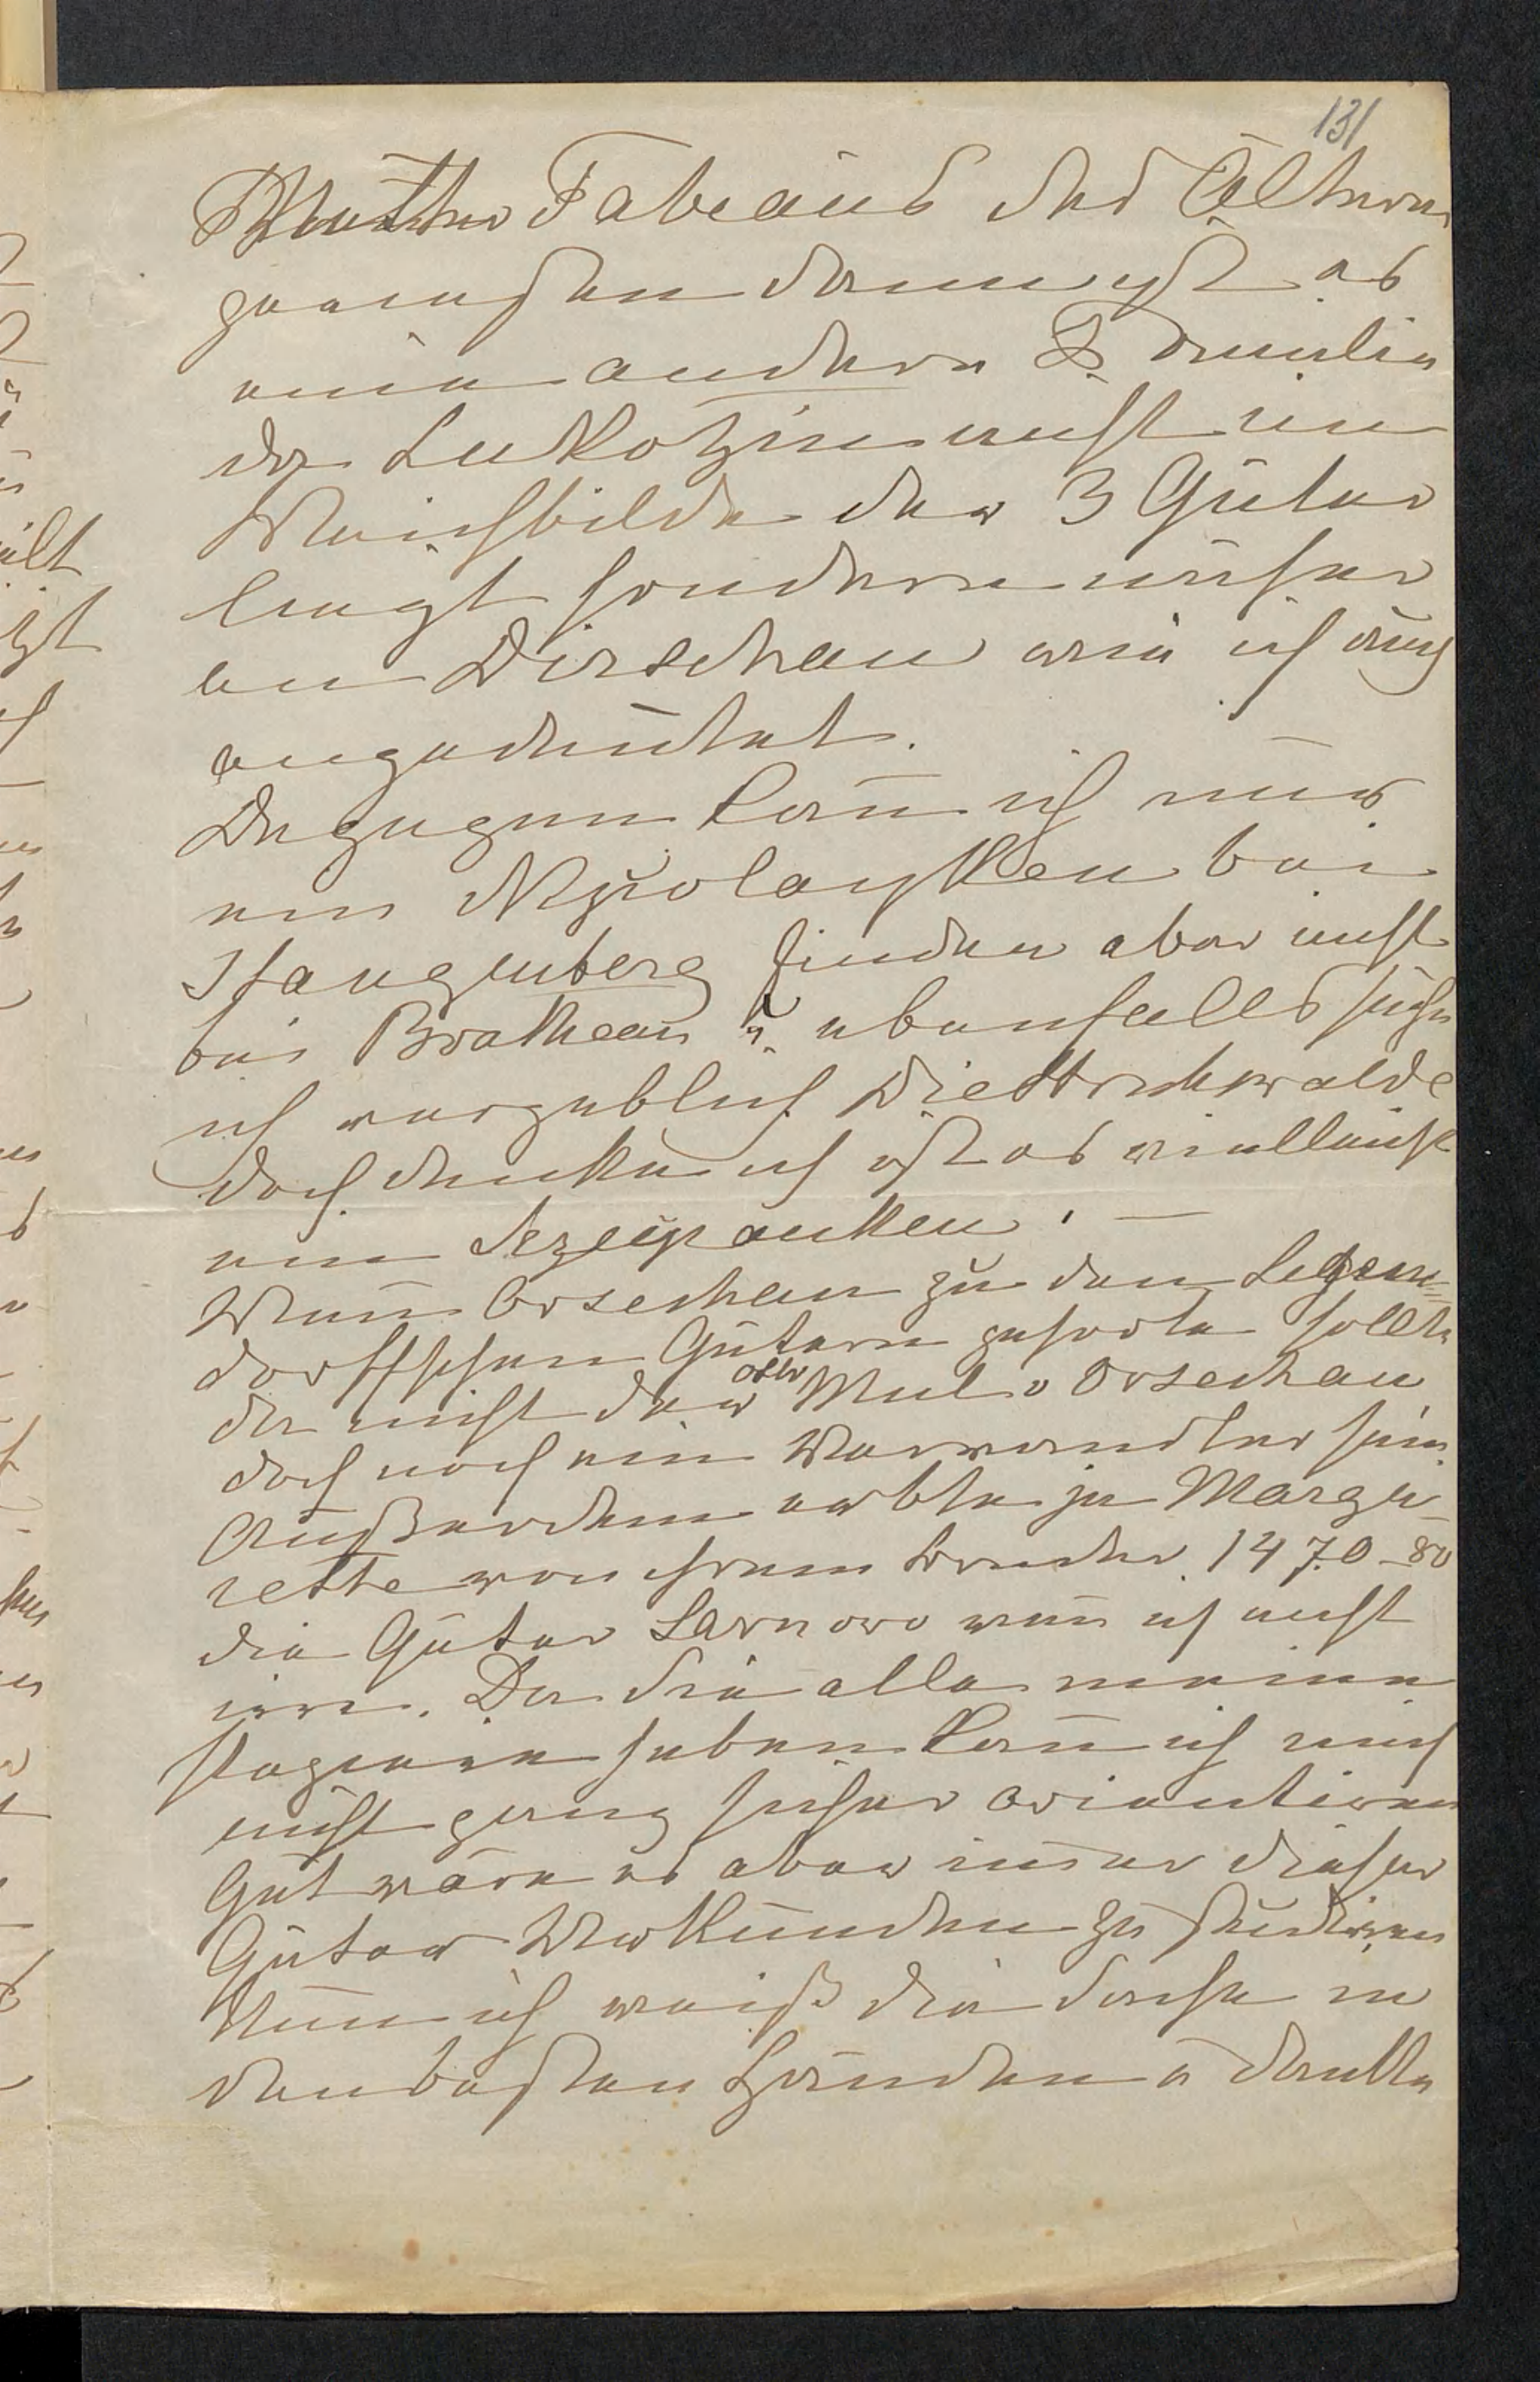 131
Mutter Fabeans des Älteren
gewesen dann ist es
eine andere Familie
da Lukotzin nicht im
Weichbilde der 3 Güter
liegt sondern näher
an Dirschau wie ich auch
angedeutet.
Dagegen kann ich nur
ein Nikolayken bei
Stangenberg finden aber nicht
bei Bratheau u. ebenfalls suche
ich vergeblich Diettrichswalde
doch denke ich ist es vielleicht
ein Sczepanken. —
Wenn Orsechau zu den Legen=
dorffschen Gütern gehörte sollte
da nicht der otto Mul v Orsechau
doch noch ein Verwandter sein
Außerdem erbte ja Marga-
rethe von ihrem Bruder 1470-80
die Güter Sarnowo wenn ich nicht
irre. Da Sie alle meine
Papiere haben kann ich mich
nicht genug sicher orientieren
Gut wäre es aber immer dieser
Güter Urkunden zu studiren
Nun ich weiß die Sache in
den besten Händen u danke